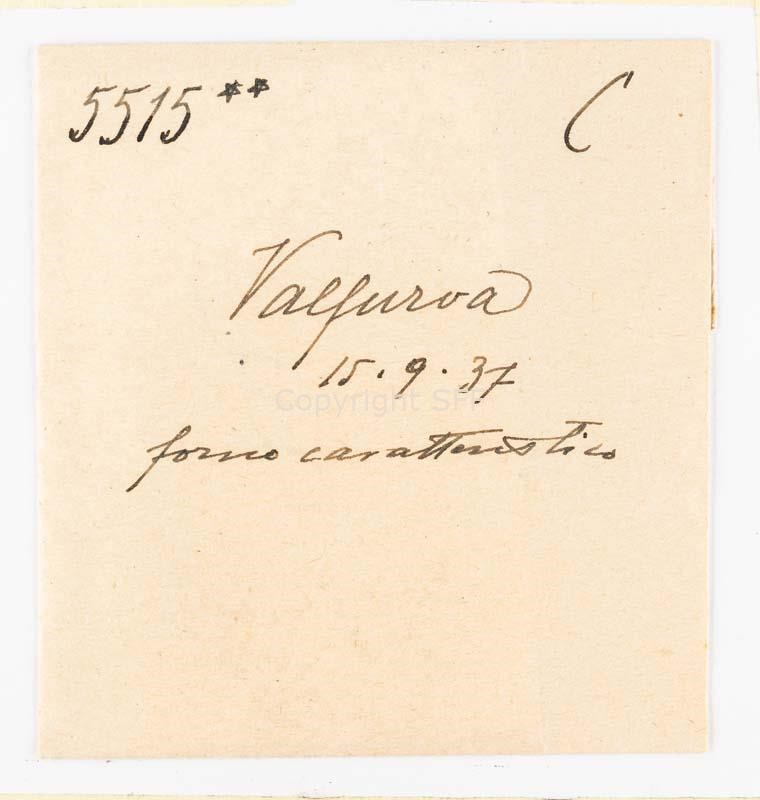 5515** C
Valfurva
15.9.37
Copyright SFI
forno caratteristico